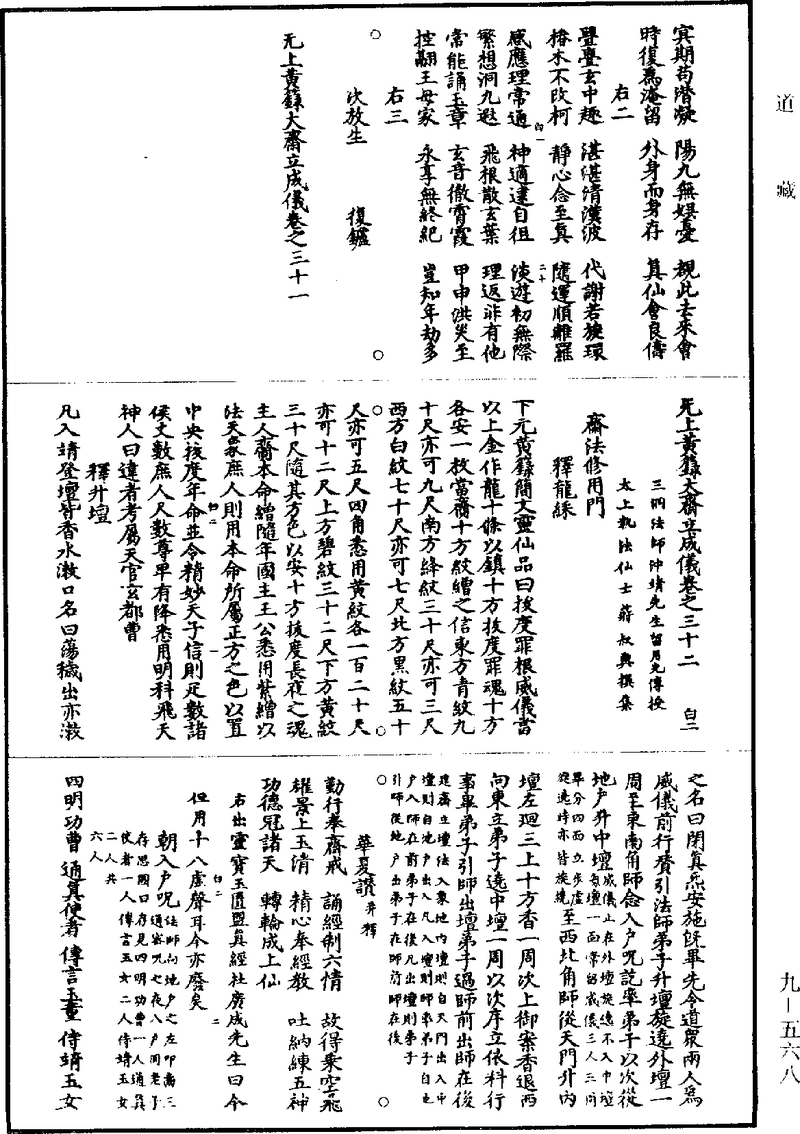 道藏
賓期苟潛凝　陽九無娛憂　覩此去來會
時復為淹留　外身而身存　真仙會良儔
右二
亹亹玄中趣　湛湛清漢波　代謝若旋環
椿木不改柯　靜心念至真　隨運順離羅
感應理常通　神適逮自徂　淡遊初無際
繁想洞九遐　飛根散玄葉　理返非有他
常能誦玉章　玄音徹霄霞　甲申洪災至
控翮王母家　永享無終紀　豈知年劫多
右三
次放生　復鑪
无上黃籙大齋立成儀卷之三十一
无上黃籙大齋立成儀卷之三十二　白二
三洞法師沖靖先生留用光傳授
太上執法仙士蔣叔輿撰集
齋法修用門
釋龍綵
下元黃籙簡文靈仙品曰拔度罪根威儀當
以上金作龍十條以鎮十方拔度罪魂十方
各安一枚當齋十方紋繒之信東方青紋九
十尺亦可九尺南方絳紋三十尺亦可三尺
西方白紋七十尺亦可七尺北方黑紋五十
尺亦可五尺四角悉用黃紋各一百二十尺
亦可十二尺上方碧紋三十二尺下方黃紋
三十尺隨其方色以安十方拔度長夜之魂
主人齋本命繒隨年國主王公悉用紫繒以
法天象庶人則用本命所屬正方之色以置
中央拔度年命並令精妙天子信則疋數諸
侯丈數庶人尺數尊卑有降悉用明科飛天
神人曰違者考屬天官玄都曹
釋升壇
凡入靖登壇皆香水漱口名曰蕩穢出亦漱
之名曰閉真炁安施既畢先令道眾兩人為
威儀前行贊引法師弟子升壇旋遶外壇一
周至東南角師念入戶呪訖率弟子以次從
地戶升中壇威儀止在外壇旋遶不入中壇每壇一面常留威儀三人三同畢分四面立步虛旋遶時亦皆旋遶至西北角師從天門升內
壇左廻三上十方香一周次上御案香退西
向東立弟子遶中壇一周以次序立依科行
事畢弟子引師出壇弟子過師前出師在後
建齋立壇法入象地內壇則自天門出入中
壇則自地戶出入凡入壇則師率弟子自地
戶入師在前弟子在後凡出壇則弟子
引師從地戶出弟子在師前師在後
華夏讚并釋
勤行奉齋戒　誦經制六情　故得乘空飛
耀景上玉清　精心奉經教　吐納練五神
功德冠諸天　轉輪成上仙
右出靈寶玉匱盟真經杜廣成先生曰今
但用十八虛聲耳今亦廢矣
朝入戶呪法師向地戶之左叩齒三
存思國口存見四明功曹一人通真
使者一人傳言玉女二人侍靖玉女
二人共
六人
四明功曹　通真使者　傳言玉童　侍靖玉女
九－五六八